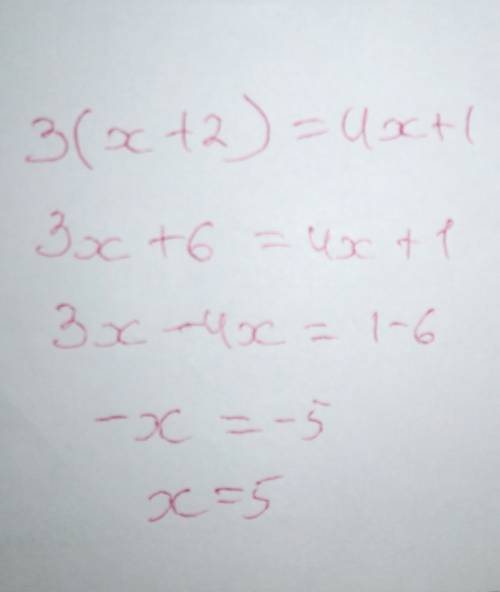 3(x+2) = 4x+1
3x + 6 = 4x + 1
3x - 4x = 1-6
-x = -5
x = 5